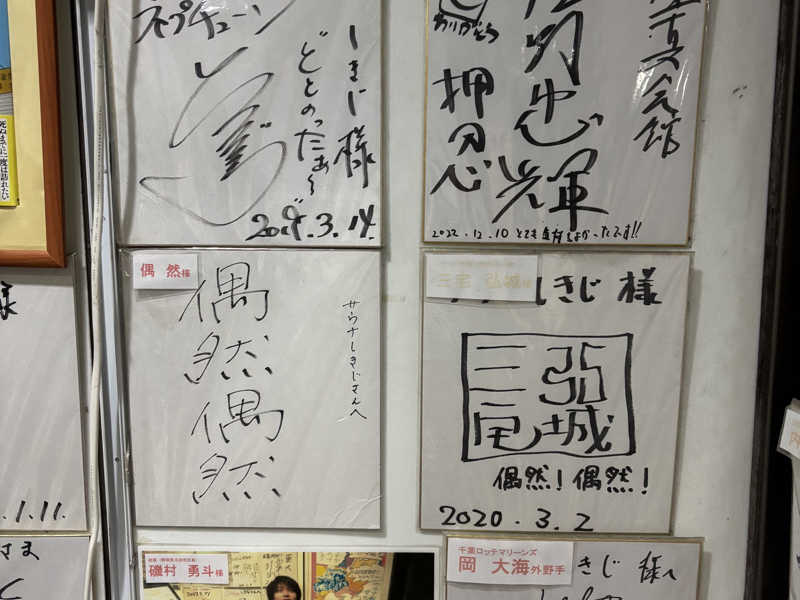 ネプチューン
しきじ様
ととのったぁ〜
2019.3.14.
ありがとう
忠輝
押忍
真会館
2022.12.10
死ぬまでに一度は訪れたい
様
1.11.
偶然様
偶然偶然
サウナしきじさんへ
三宅 弘城様
しきじ 様
三宅
弘城
偶然!偶然!
2020.3.2
さま
磯村 勇斗様
千葉ロッテマリーンズ
岡 大海外野手
きじ 様へ